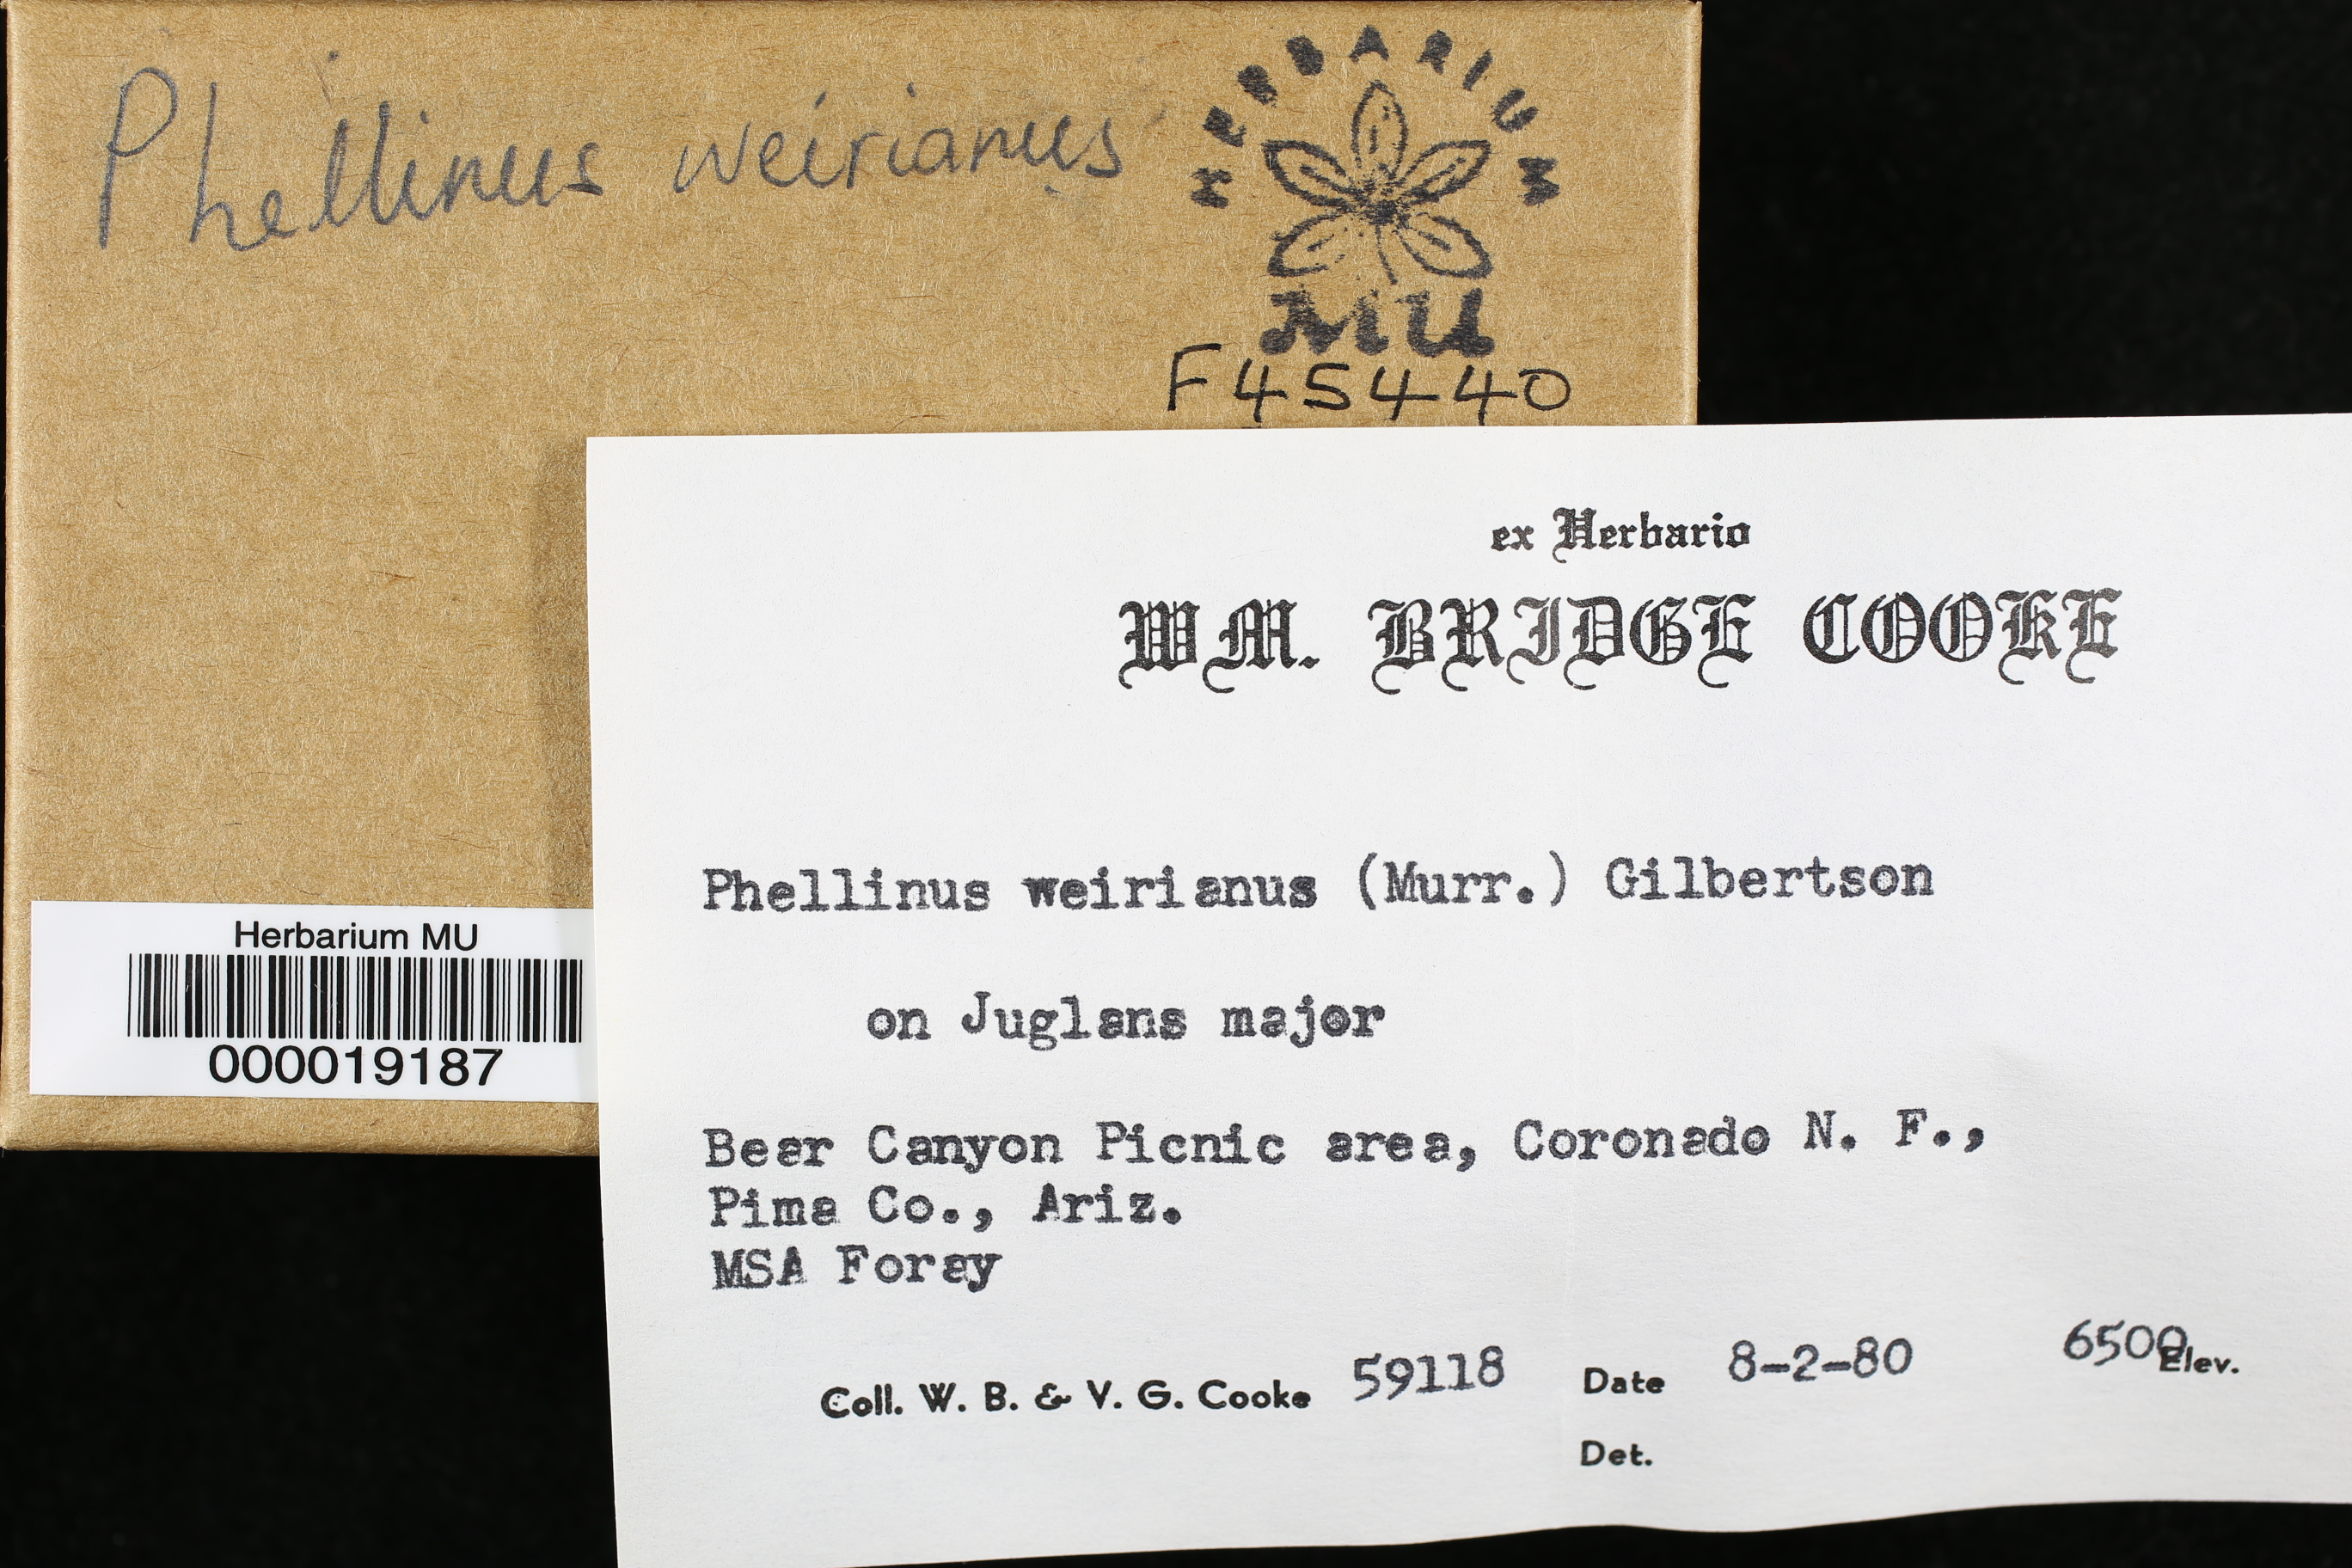 Phellinus weirianus
HERBARIUM
MU
F45440
ex Herbario
WM. BRIDGE COOKE
Phellinus weirianus (Murr.) Gilbertson
on Juglans major
Bear Canyon Picnic area, Coronado N. F.,
Pima Co., Ariz.
MSA Foray
Coll. W. B. & V. G. Cooke 59118 Date 8-2-80 6500 Elev.
Det.
Herbarium MU
000019187